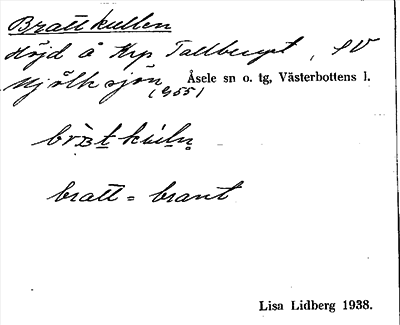 Brattkullen
Höjd å Krp Tallberget, SV
Mjölksjön, Åsele sn o. tg, Västerbottens l.
(G55)
bratt = brant
Lisa Lidberg 1938.